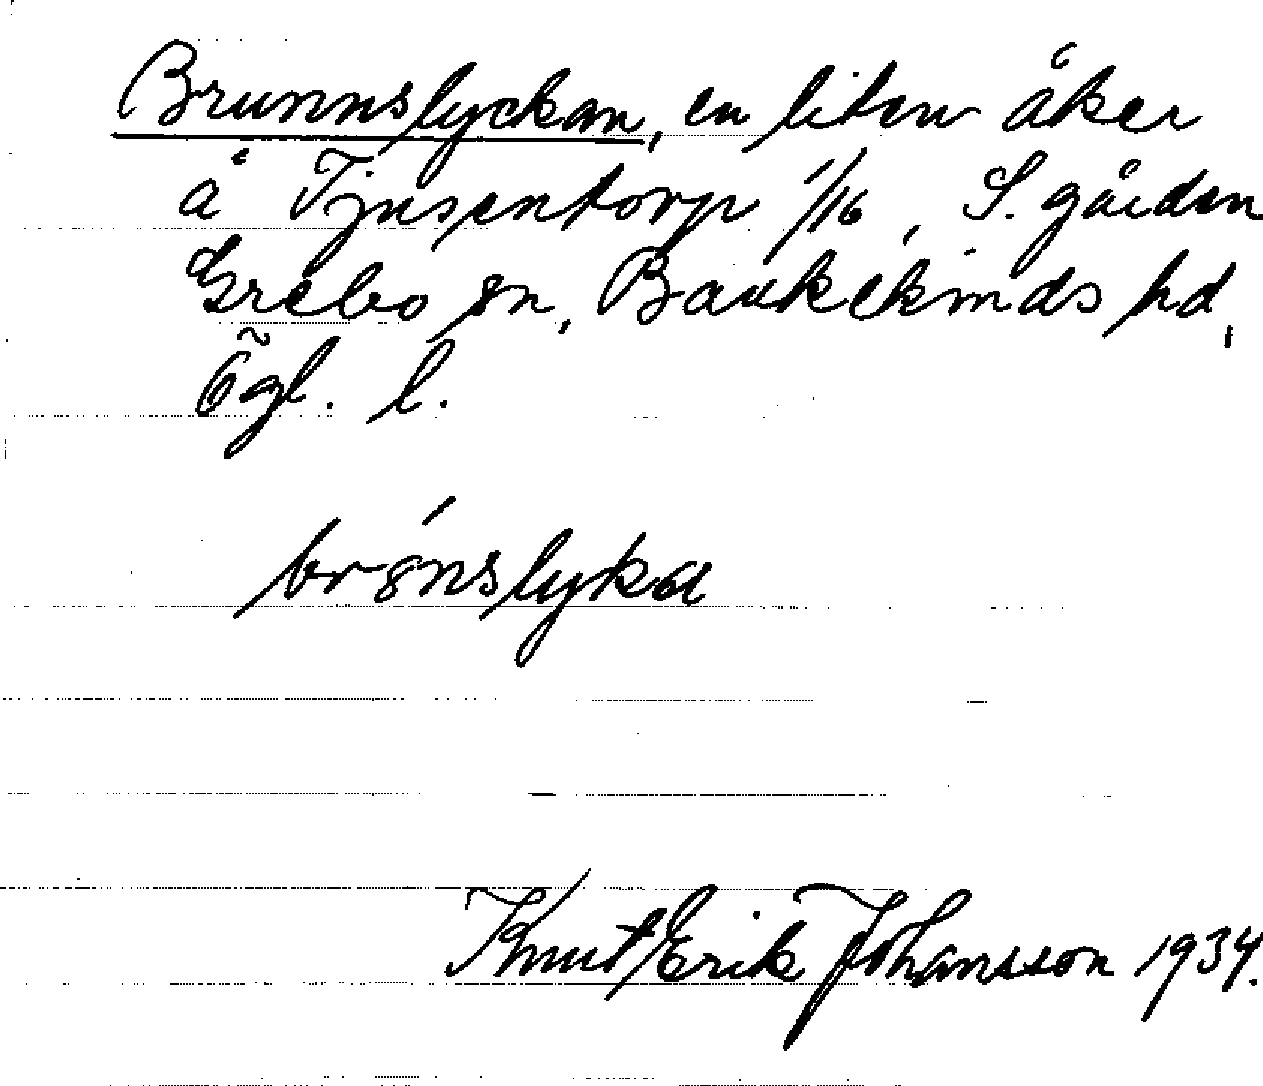 Brunnslyckan, en liten åker
å Tjusentorp 1/16, S. gården
Grebo sn, Bankekinds hd,
Ögl. l.
brønslyka
Knut Erik Johansson 1934.